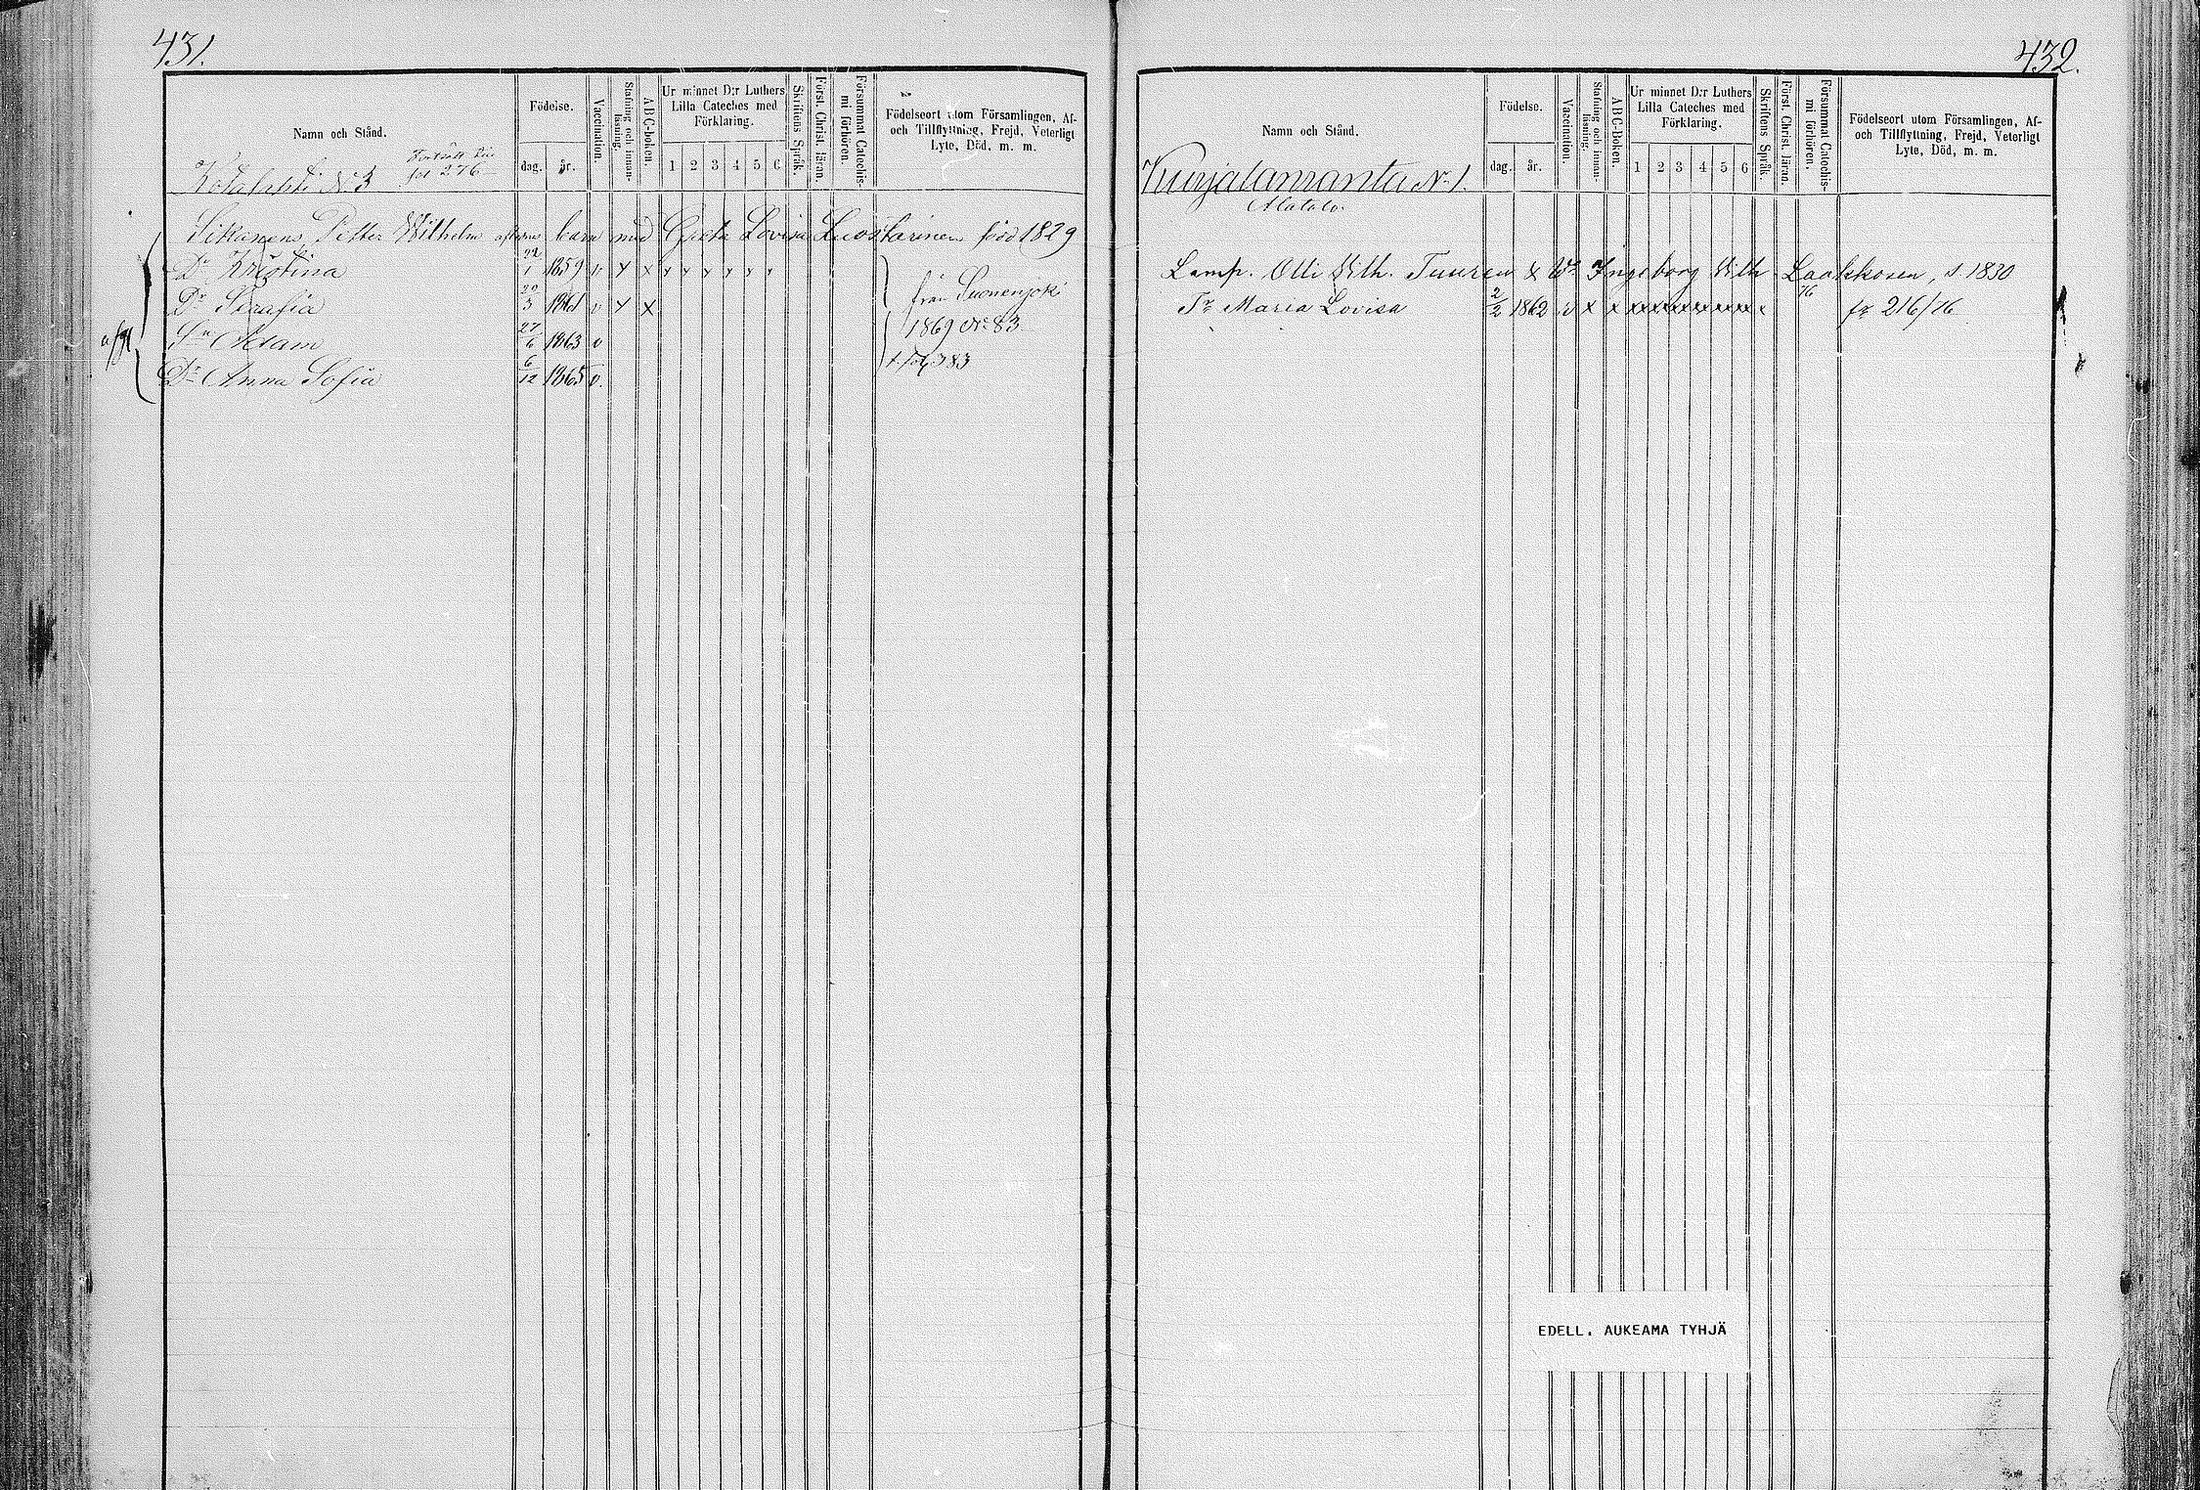 431.
Namn och Stånd.
Födelse.
dag. år.
Vaccination.
Stafning och innanläsning.
ABC-boken.
Ur minnet D:r Luthers Lilla Cateches med Förklaring.
1 2 3 4 5 6
Skriftens Språk.
Först. Christ. läran.
Försummat Catechismi förhören.
Födelseort utom Församlingen, Af- och Tillflyttning, Frejd, Veterligt Lyte, Död, m. m.
fol 276
N:o 3
Petter Wilhelm barn med Greta Lovisa Luostarinen född 1829
Dr Kristina 22/1 1859 v x x
Dr Serafia 20/3 1861 v x x från Suonenjoki
Sn Adam 27/6 1863 v 1869 No 83.
Dr Anna Sofia 6/12 1865 v. 383
432.
Namn och Stånd.
Födelse.
dag. år.
Vaccination.
Stafning och innanläsning.
ABC-boken.
Ur minnet D:r Luthers Lilla Cateches med Förklaring.
1 2 3 4 5 6
Skriftens Språk.
Först. Christ. läran.
Försummat Catechismi förhören.
Födelseort utom Församlingen, Af- och Tillflyttning, Frejd, Veterligt Lyte, Död, m. m.
Kurjalanranta No 1.
Alatalo.
Lamp. Olli Vilh. Tuuren & Ingeborg Vilh. Laakkonen, f. 1830
Maria Lovisa 2/2 1862 v x x x x x x x x 76 fr 216/76
EDELL. AUKEAMA TYHJÄ